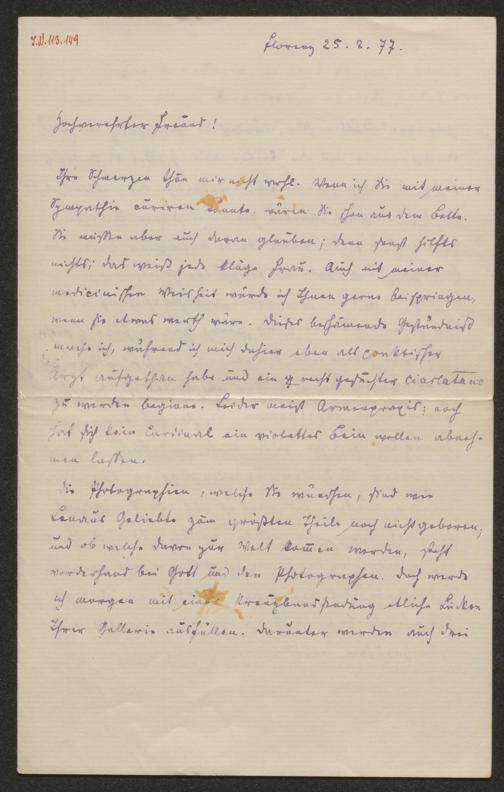 I.N. 113.149
Florenz 25. 2. 77.
Hochverehrter Freund!
Ihre Schmerzen thun mir nicht wohl. Wenn ich Sie mit meiner
Sympathie curiren könnte, wären Sie schon aus dem Bette.
Sie müssen aber auch daran glauben; denn sonst hilfts
nichts; das weiß jede kluge Frau. Auch mit meiner
medicinischen Weisheit würde ich Ihnen gerne beispringen,
wenn sie etwas werth wäre. Dieses beschämende Geständniß
mache ich, während ich mich dahier eben als praktischer
Arzt aufgethan habe und ein recht gesuchter ciarlatano
zu werden beginne. Leider meist Armenpraxis; noch
hat sich kein Cardinal ein violettes Bein wollen abneh-
men lassen.
Die Photographien, welche Sie wünschen, sind wie
Lenaus Geliebte zum größten Theile noch nicht geboren;
und ob welche davon zur Welt kommen werden, steht
vorderhand bei Gott und den Photographen. Doch werde
ich morgen mit einer Kreuzbandsendung etliche Lücken
Ihrer Gallerie ausfüllen. Darunter werden auch drei